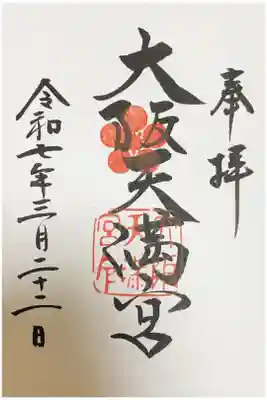 奉拝
大阪天満宮
令和七年三月二十二日